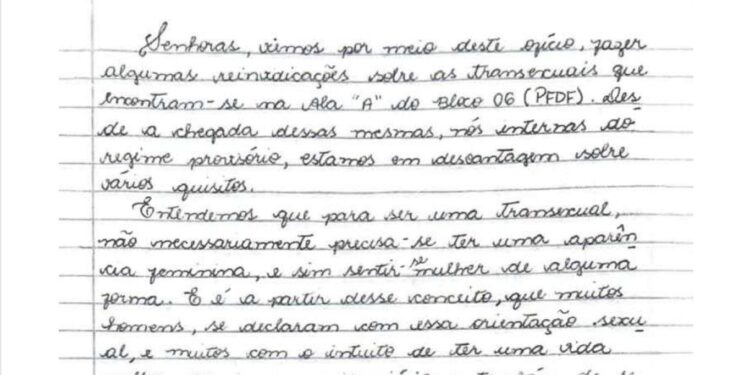 Senhoras, vimos por meio deste ofício, fazer
algumas reinvidicações sobre as transexuais que
encontram-se na Ala "A" do Bloco 06 (PFDF). Des
de a chegada dessas mesmas, nós internas do
regime provisório, estamos em desvantagem sobre
vários quisitos.
Entendemos que para ser uma transexual,
não necessariamente precisa-se ter uma aparên
cia feminina, e sim sentir-se mulher de alguma
forma. E é a partir desse conceito, que muitos
homens, se declaram com essa orientação sexu
al, e muitos com o intuito de ter uma vida